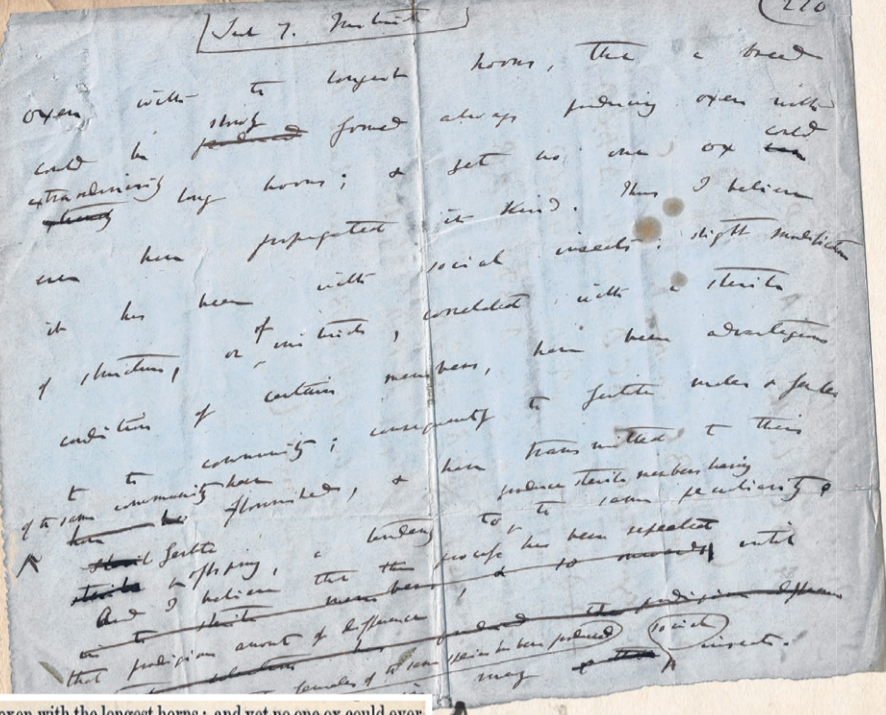 220
Sect 7. Instinct
oxen with to longest horns, that a breed
could be slowly formed always producing oxen with
extraordinarily long horns; & yet no one ox could
ever have propagated its kind. Thus I believe
it has been with social insects: slight modification
of structure, or of instinct, correlated with a sterile
condition of certain members, have been advantageous
t to community; consequently to fertile males & females
of to same community have flourished, & have transmitted t their
fertile offspring, a tendency to produce sterile members having to same peculiarity
And I believe that this process has been repeated until
that prodigious amount of difference
females of to same species has been produced social
may insects.
oxen with the longest horns; and yet no one ox could ever